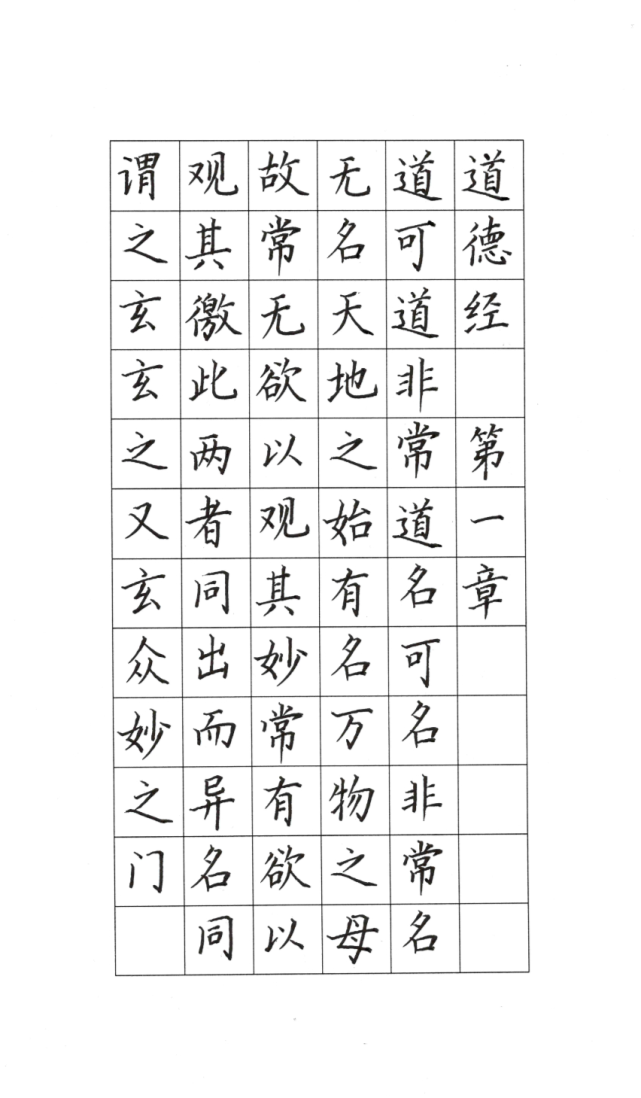 道德经 第一章
道可道非常道名可名非常名
无名天地之始有名万物之母
故常无欲以观其妙常有欲以
观其徼此两者同出而异名同
谓之玄玄之又玄众妙之门